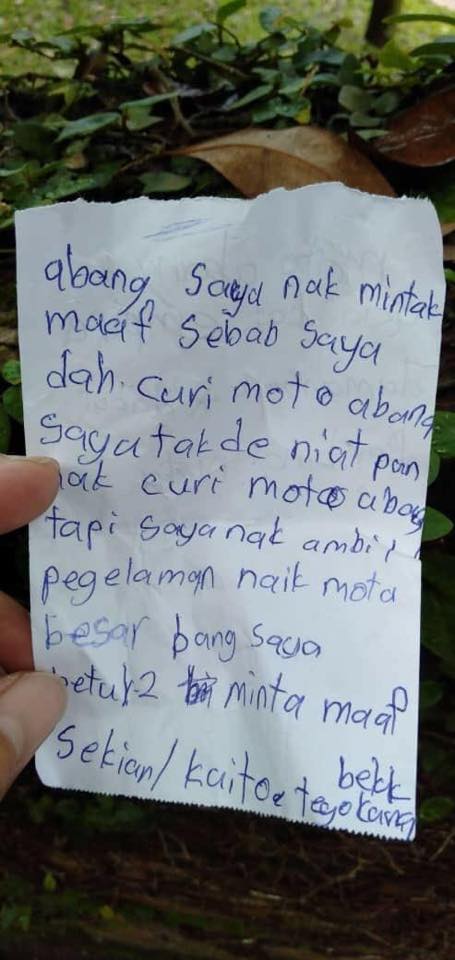 abang saya nak mintak
maaf sebab saya
dah. curi moto abang
saya takde niat pon
nak curi moto abag
tapi saya nak ambil
pegelaman naik moto
besar bang saya
betul-2 minta maaf
bekk
Sekian/ kaitoe teyokang